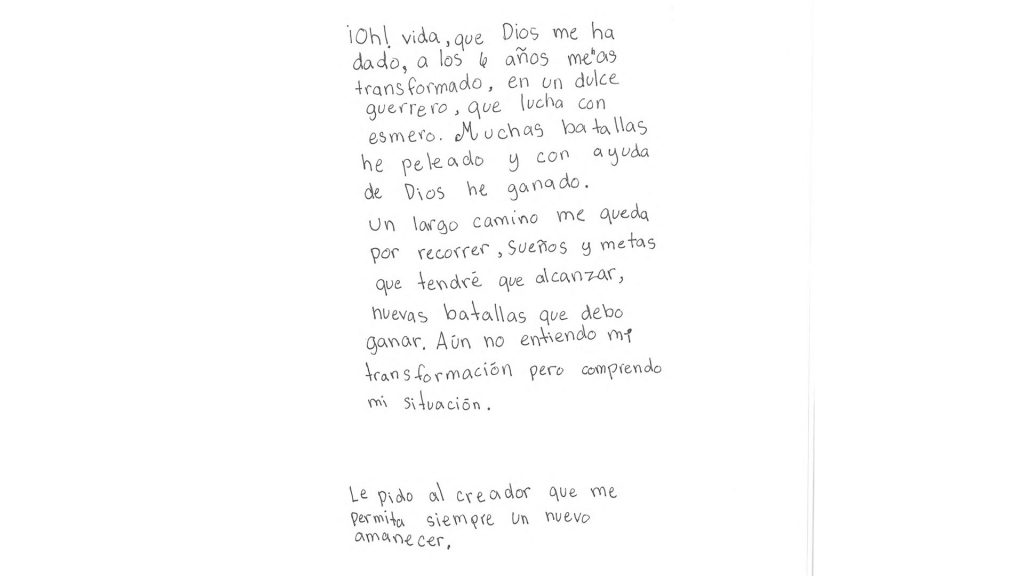 ¡Oh! vida, que Dios me ha
dado, a los 6 años me"as
transformado, en un dulce
guerrero, que lucha con
esmero. Muchas batallas
he peleado y con ayuda
de Dios he ganado.
un largo camino me queda
por recorrer, sueños y metas
que tendré que alcanzar,
nuevas batallas que debo
ganar. Aún no entiendo mi
transformación pero comprendo
mi situación.
Le pido al creador que me
permita siempre un nuevo
amanecer.